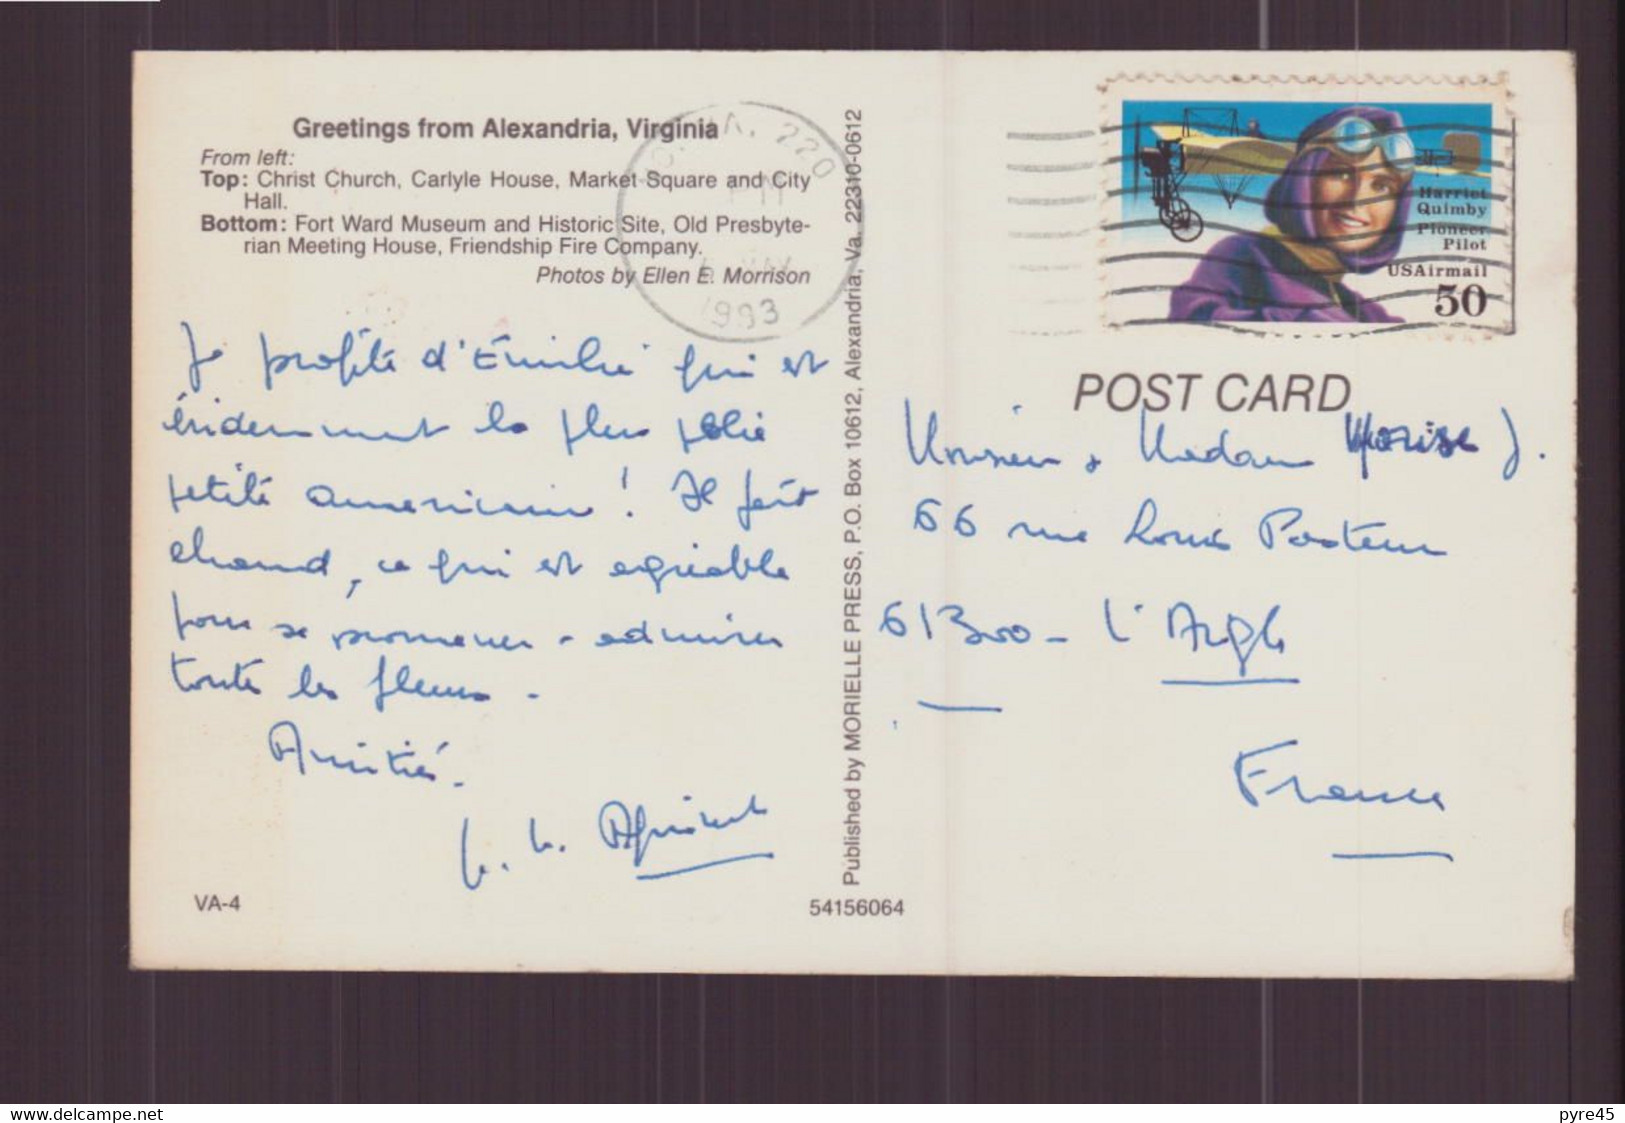 Greetings from Alexandria, Virginia
From left:
Top: Christ Church, Carlyle House, Market Square and City
Hall.
Bottom: Fort Ward Museum and Historic Site, Old Presbyte-
rian Meeting House, Friendship Fire Company.
Photos by Ellen E. Morrison
VA. 220
PM
MAY
1993
Je profite d'Emilie qui est
évidemment la plus jolie
petite americaine! Il fait
chaud, ce qui est agréable
pour se promener - admirer
toutes les fleurs -
Amitiés.
VA-4
54156064
Published by MORIELLE PRESS, P.O. Box 10612, Alexandria, Va. 22310-0612
Harriet
Quimby
Pioneer
Pilot
USAirmail
50
POST CARD
Monsieur & Madame J.
66 rue Louis Pasteur
61300 - L'Aigle
France
delcampe.net
pyre45